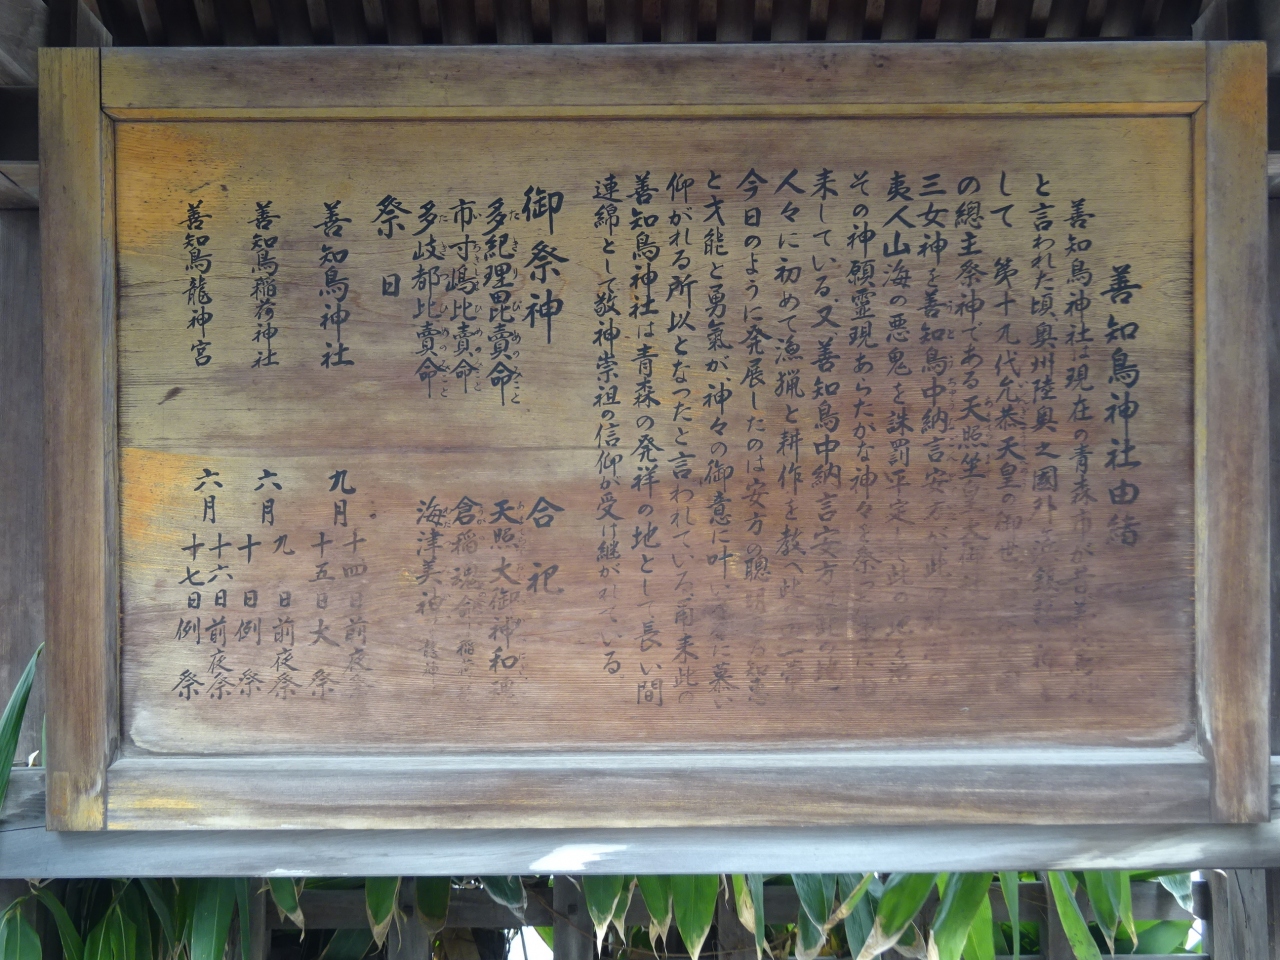 善知鳥神社由緒
善知鳥神社は現在の青森市が
と言われた頃奥州陸奥之國外
して 第十九代允恭天皇の御世
の總主祭神である天照坐
三女神を善知鳥中納言安方が此
夷人山海の悪鬼を誅罰平定し此の地
その神願靈現あらたかな神々を祭
来している、又善知鳥中納言安方は此の地
人々に初めて漁猟と耕作を教へ此 一帯
今日のように発展したのは安方の聰明
と才能と勇氣が、神々の御意に叶い 慕い
仰がれる所以となったと言われている、爾来此の
善知鳥神社は青森の発祥の地として長い間
連綿として敬神崇祖の信仰が受け継がれている
御祭神
多紀理毘賣命
市寸嶋比賣命
多岐都比賣命
合祀
天照大御神和魂
倉稲魂命
海津美神
祭日
善知鳥神社 九月 十四日前夜祭
十五日大祭
善知鳥稲荷神社 六月 九日前夜祭
十日例祭
善知鳥龍神宮 六月 十六日前夜祭
十七日例祭